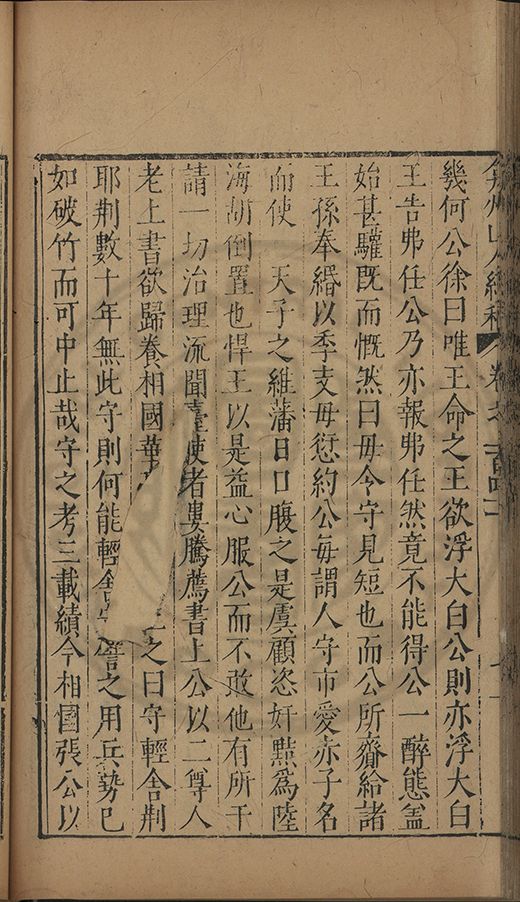 弇州山人續稿 卷之
幾何公徐曰唯王命之王欲浮大白公則亦浮大白
王告弗任公乃亦報弗任然竟不能得公一醉態盖
始甚驩既而慨然曰毋令守見短也而公所齎給諸
王孫奉緡以季支毋愆約公每謂人守市愛赤子名
而使 天子之維藩日口腹之是虞顧恣奸黠為陸
海胡倒置也悍王以是益心服公而不敢他有所干
請一切治理流聞臺使者婁騰薦書上公以二尊人
老上書欲歸養相國華 之曰守輕舍荆
耶荆數十年無此守則何能輕舍 譬之用兵勢已
如破竹而可中止哉守之考三載績今相國張公以